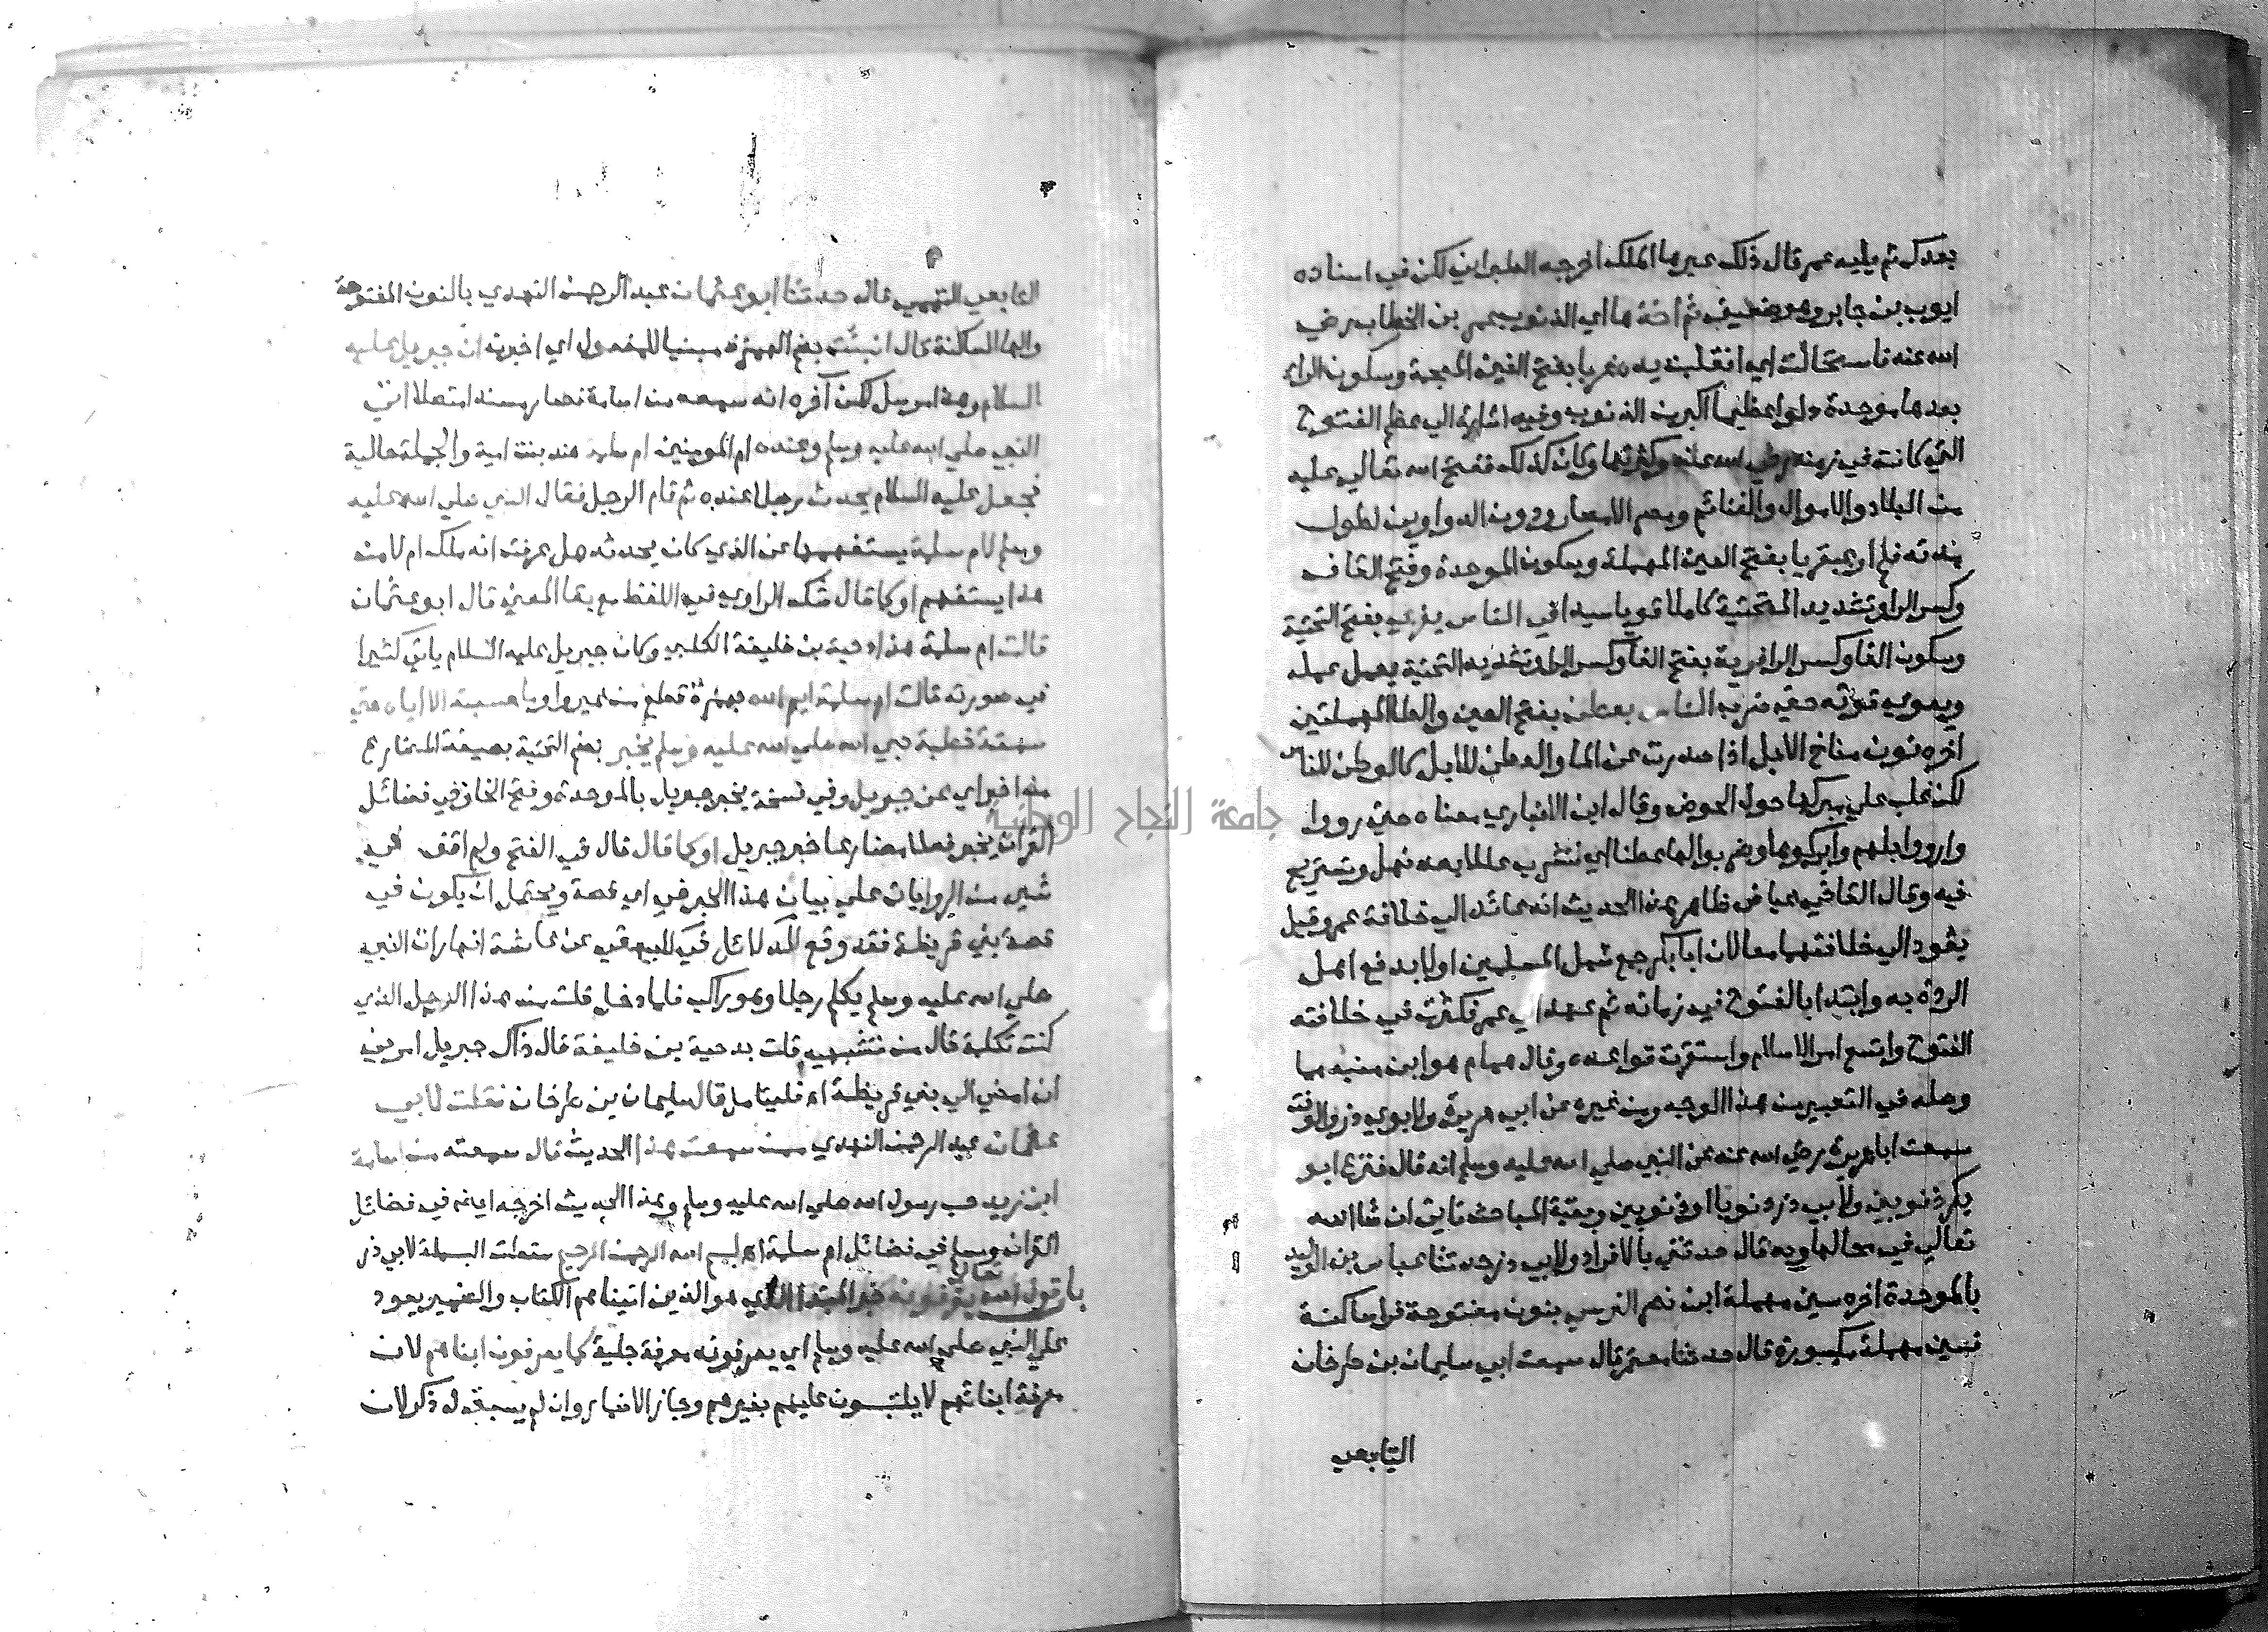 بعدك ثم يليه عمر قال ذلك عبرها الملك اخرجه الطبراني لكن في اسناده
ايوب بن جابر وهو ضعيف ثم اخذها اي الذنوب عمر بن الخطاب رضي
الله عنه فاستحالت اي انقلبت بيده غربا بفتح الغين المعجمة وسكون الرا
بعدها موحدة دلوا عظيما اكبر من الذنوب وفيه اشارة الي عظم الفتوح
التي كانت في زمنه رضي الله عنه وكثرتها وكان كذلك ففتح الله تعالي عليه
من البلاد والاموال والغنائم ومصر الامصار ودون الدواوين لطول
مدته فلم ار عبقريا بفتح العين المهملة وسكون الموحدة وفتح القاف
وكسر الرا وتشديد التحتية كاملا قويا سيدا في الناس يفري بفتح التحتية
وسكون الفا وكسر الرا فرية بفتح الفا وكسر الرا وتشديد التحتية يعمل عمله
ويقوي قوته حتي ضرب الناس بعطن بفتح العين والطا المهملتين
اخره نون مناخ الابل اذا صدرت عن الما والعطن للابل كالوطن للناس
لكن غلب علي مبركها حول الحوض وقال ابن الانباري معناه حتي رووا
وارووا ابلهم وابركوها وضربوا لها عطنا اي لتشرب عللا بعد نهل وتستريح
فيه وقال القاضي عياض ظاهر هذا الحديث انه عائد الي خلافة عمر وقيل
يعود الي خلافتهما معا لان ابا بكر جمع شمل المسلمين اولا بدفع اهل
الردة به وابتدا بالفتوح في زمانه ثم عهد الي عمر فكثرت في خلافته
الفتوح واتسع امر الاسلام واستقرت قواعده وقال همام هو ابن منبه مما
وصله في التعبير من هذا الوجه ومن غيره عن ابي هريرة ولابوي ذر والوقت
سمعت ابا هريرة رضي الله عنه عن النبي صلي الله عليه وسلم انه قال فنزع ابو
بكر ذنوبين ولابي ذر ذنوبا او ذنوبين وبقية المباحث تاتي ان شا الله
تعالي في محالها وبه قال حدثني بالافراد ولابي ذر حدثنا عباس بن الوليد
بالموحدة اخره سين مهملة ابن نصر النرسي بنون مفتوحة فرا ساكنة
فسين مهملة مكسورة قال حدثنا معتمر قال سمعت ابي سليمان بن طرخان
التابعي
التابعي التيمي قال حدثنا ابو عثمان عبد الرحمن النهدي بالنون المفتوحة
والها الساكنة قال انبئت بضم الهمزة مبنيا للمفعول اي اخبرت ان جبريل عليه
السلام وهذا مرسل لكن آخره انه سمعه من اسامة فصار مسندا متصلا اتي
النبي صلي الله عليه وسلم وعنده ام المومنين ام سلمة هند بنت امية والجملة حالية
فجعل عليه السلام يحدث رجلا عنده ثم قام الرجل فقال النبي صلي الله عليه
وسلم لام سلمة يستفهمها عن الذي كان يحدثه هل عرفت انه ملك ام لا من
هذا يستفهم او كما قال شك الراوي في اللفظ مع بقا المعني قال ابو عثمان
قالت ام سلمة هذا دحية بن خليفة الكلبي وكان جبريل عليه السلام ياتي كثيرا
في صورته قالت ام سلمة ايم الله بهمزة قطع من غير واو ما حسبته الا اياه حتي
سمعت خطبة نبي الله صلي الله عليه وسلم يخبر بضم التحتية بصيغة المضارع
من اخبر اي عن جبريل وفي نسخة بخبر جبريل بالموحدة وفتح الخا في فضائل
القران يخبر فعلا مضارعا خبر جبريل او كما قال قال في الفتح ولم اقف في
شي من الروايات علي بيان هذا الخبر في اي قصة ويحتمل ان يكون في
قصة بني قريظة فقد وقع في الدلائل للبيهقي عن عائشة انها رات النبي
صلي الله عليه وسلم يكلم رجلا وهو راكب فلما دخل قلت من هذا الرجل الذي
كنت تكلمه قال من تشبهيه قلت بدحية بن خليفة قال ذاك جبريل امرني
ان امضي الي بني قريظة اه فليتامل قال سليمان بن طرخان فقلت لابي
عثمان عبد الرحمن النهدي ممن سمعت هذا الحديث قال سمعته من اسامة
ابن زيد حب رسول الله صلي الله عليه وسلم وهذا الحديث اخرجه ايضا في فضائل
القران ومسلم في فضائل ام سلمة اه بسم الله الرحمن الرحيم سقطت البسملة لابي ذر
باب قول الله تعالي يعرفونه خبر المبتدا الذي هو الذين اتيناهم الكتاب والضمير يعود
علي النبي صلي الله عليه وسلم اي يعرفونه معرفة جلية كما يعرفون ابناهم لان
معرفة ابنائهم لا يلتبسون عليهم بغيرهم وجاز الاضمار وان لم يسبق له ذكر لان
جامعة النجاح الوطنية